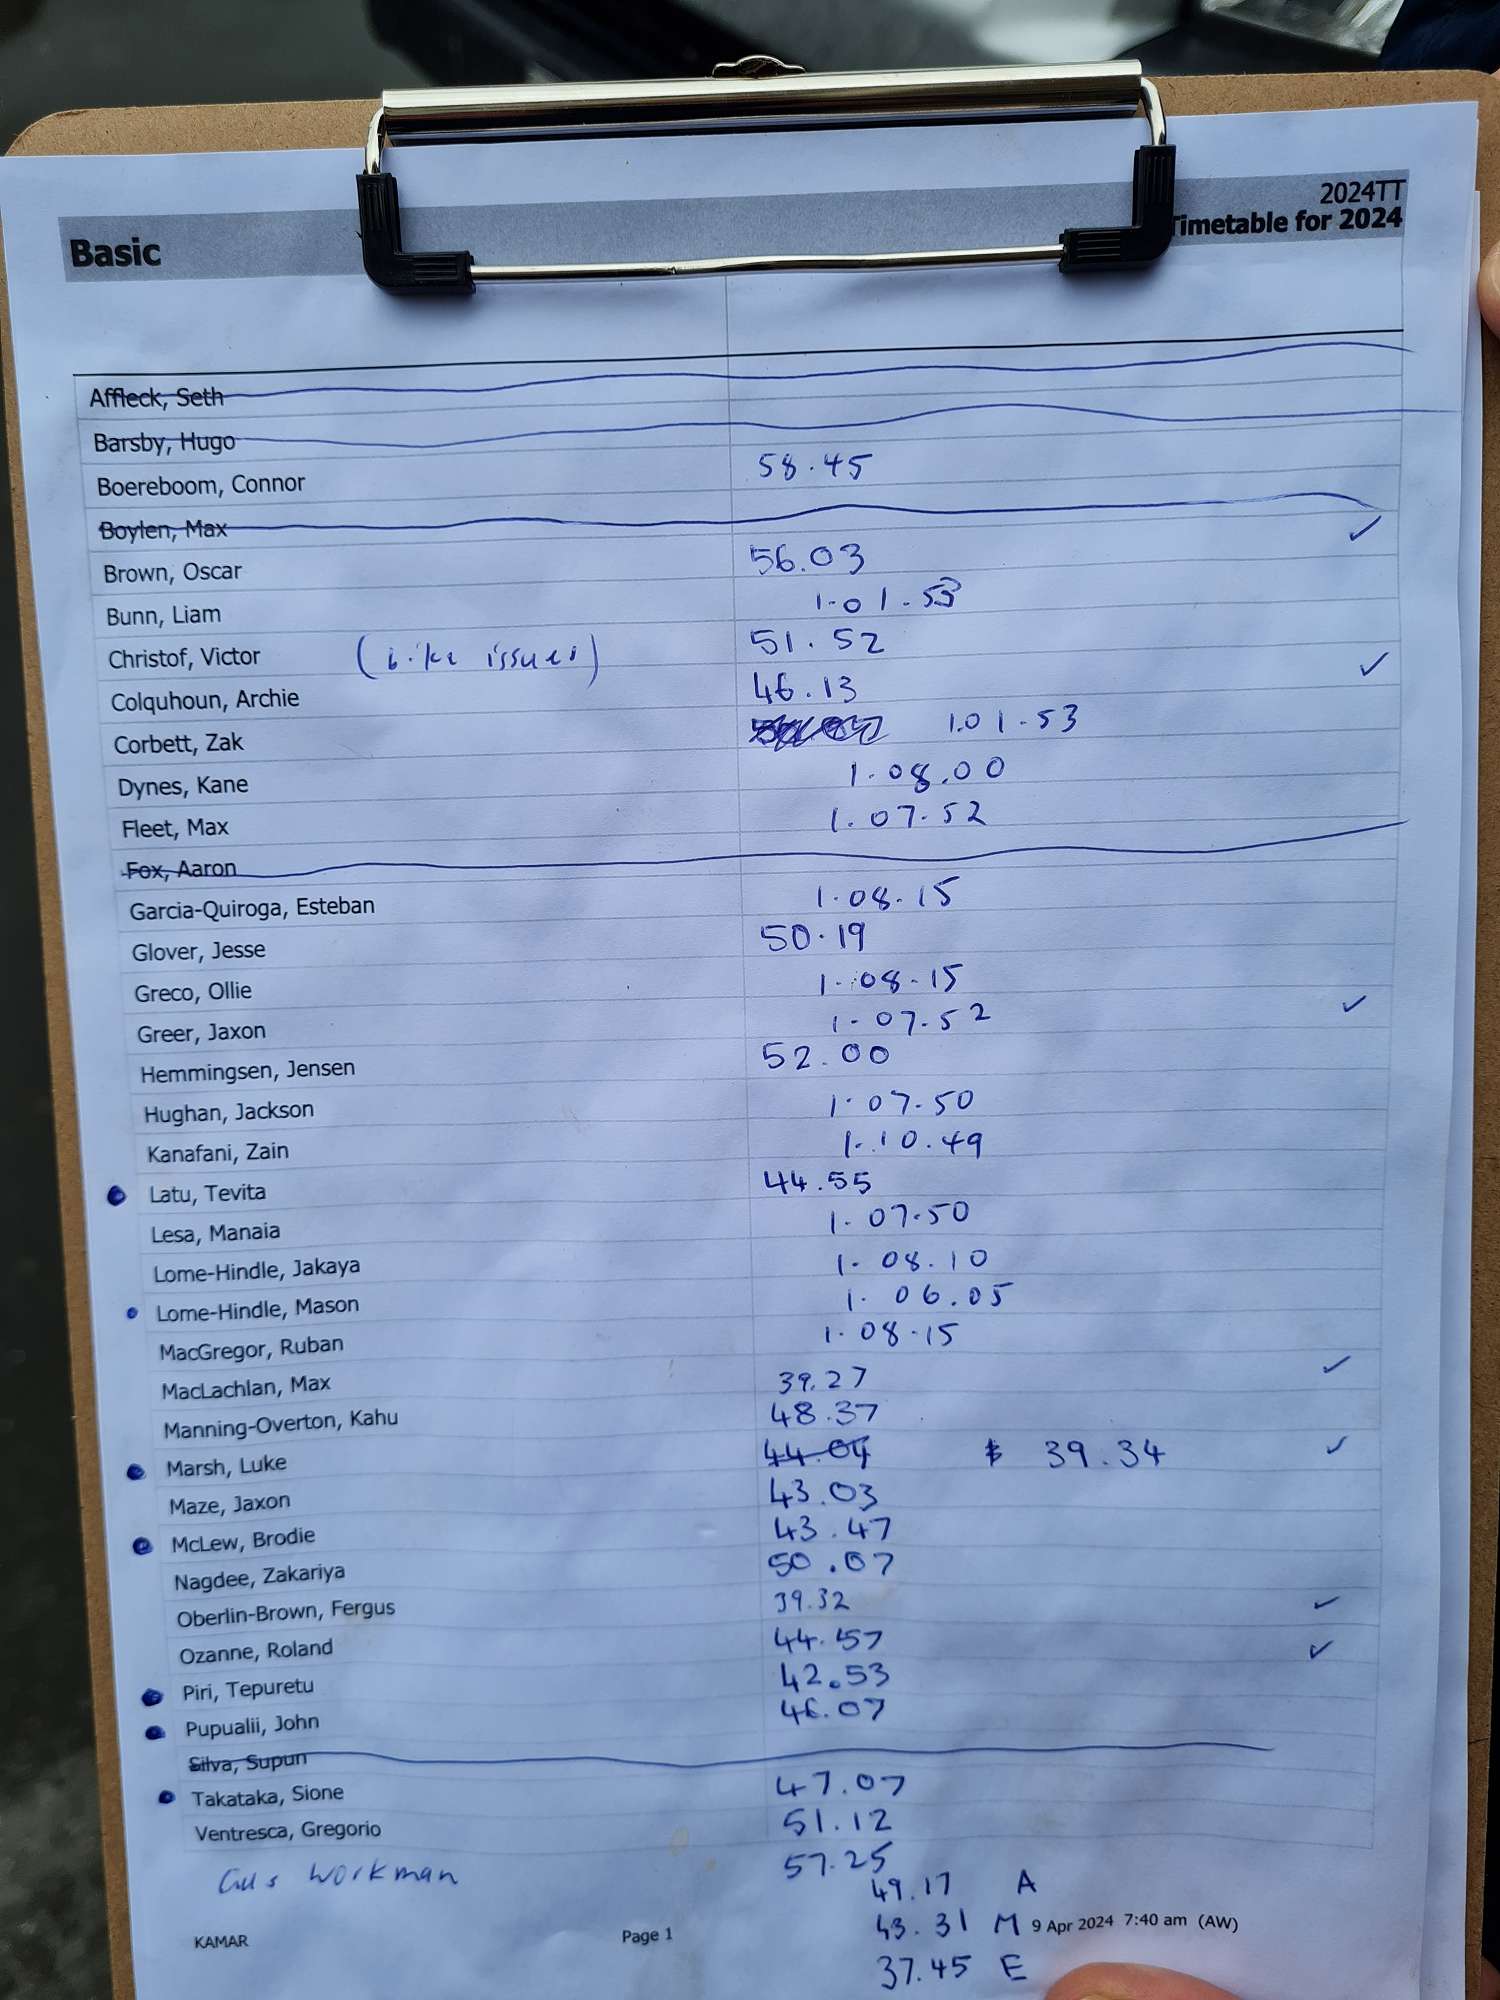 2024TT
Basic Timetable for 2024
Affleck, Seth
Barsby, Hugo
Boereboom, Connor 58.45
Boylen, Max
Brown, Oscar 56.03 ✓
Bunn, Liam 1.01.53
Christof, Victor (bike issues) 51.52
Colquhoun, Archie 46.13 ✓
Corbett, Zak 1.01.53
Dynes, Kane 1.08.00
Fleet, Max 1.07.52
Fox, Aaron
Garcia-Quiroga, Esteban 1.08.15
Glover, Jesse 50.19
Greco, Ollie 1.08.15
Greer, Jaxon 1.07.52 ✓
Hemmingsen, Jensen 52.00
Hughan, Jackson 1.07.50
Kanafani, Zain 1.10.49
Latu, Tevita 44.55
Lesa, Manaia 1.07.50
Lome-Hindle, Jakaya 1.08.10
Lome-Hindle, Mason 1.06.05
MacGregor, Ruban 1.08.15
MacLachlan, Max 39.27 ✓
Manning-Overton, Kahu 48.37
Marsh, Luke 44.04 39.34 ✓
Maze, Jaxon 43.03
McLew, Brodie 43.47
Nagdee, Zakariya 50.07
Oberlin-Brown, Fergus 39.32 ✓
Ozanne, Roland 44.57 ✓
Piri, Tepuretu 42.53
Pupualii, John 46.07
Silva, Supun
Takataka, Sione 47.07
Ventresca, Gregorio 51.12
Gus Workman 57.25
49.17 A
43.31 M
KAMAR Page 1 9 Apr 2024 7:40 am (AW)
37.45 E